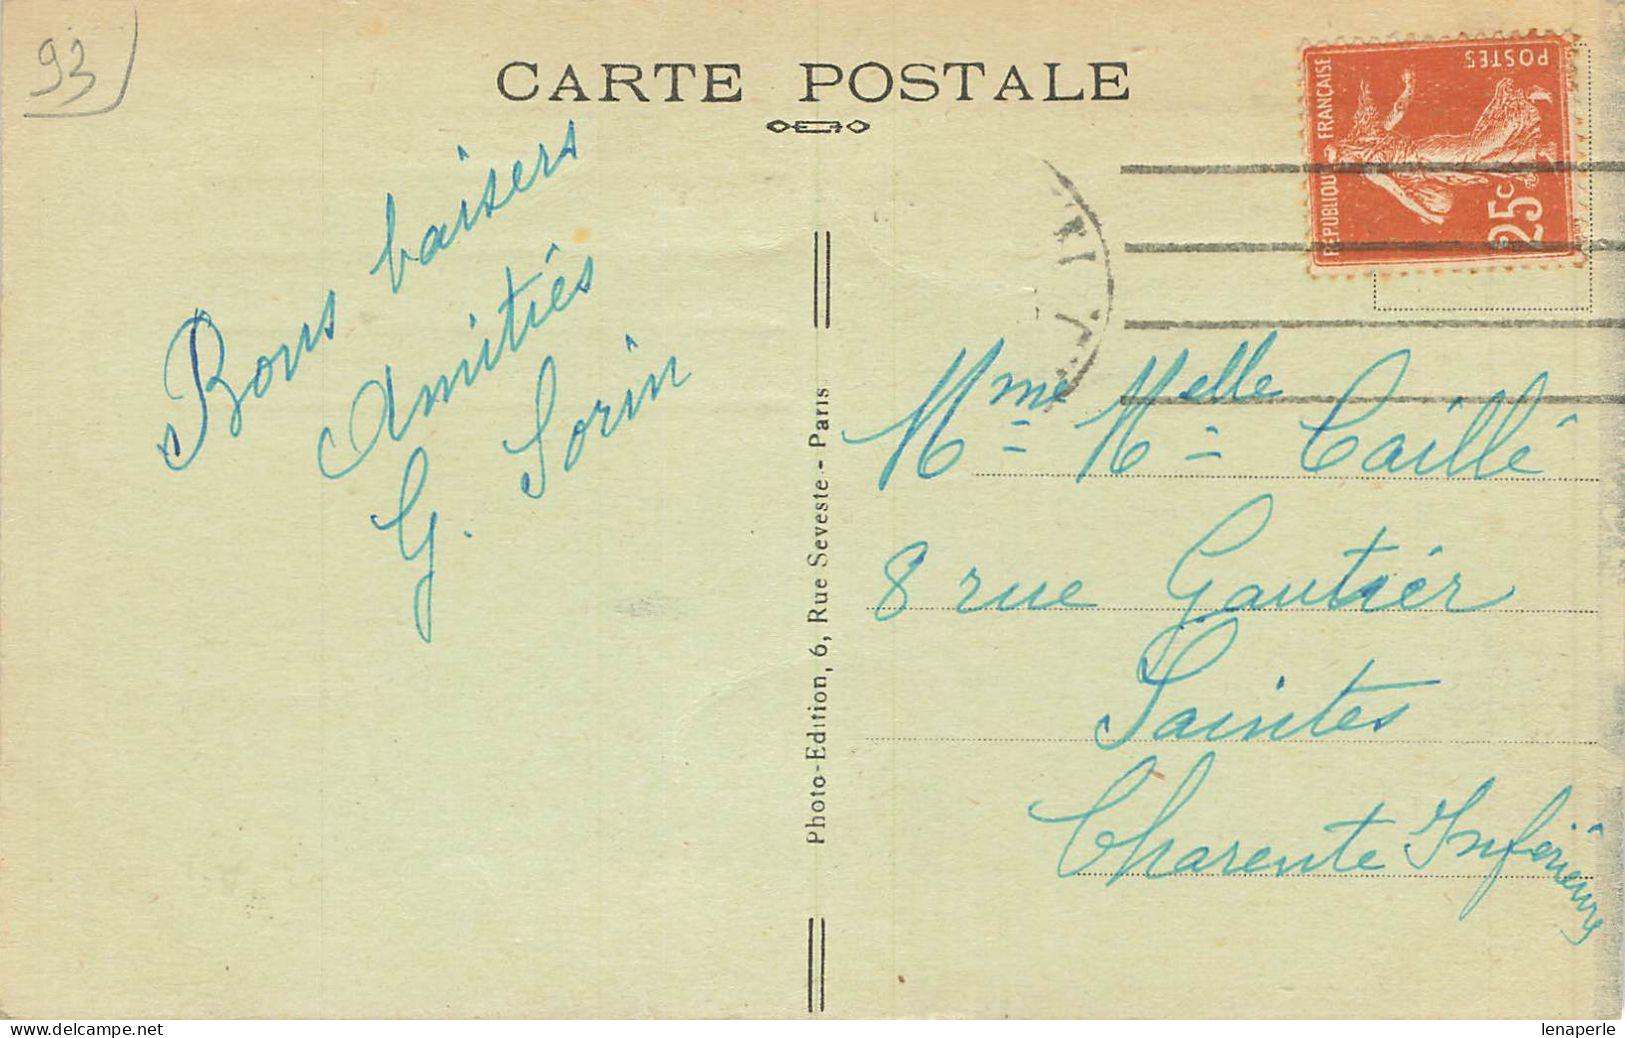 93
CARTE POSTALE
REPUBLIQUE FRANÇAISE
POSTES
25c
Bons baisers
Amitiés
G. Sorin
Photo-Edition, 6, Rue Seveste - Paris
Mme Melle Caillé
8 rue Gautier
Saintes
Charente Inférieure
delcampe.net
lenaperle